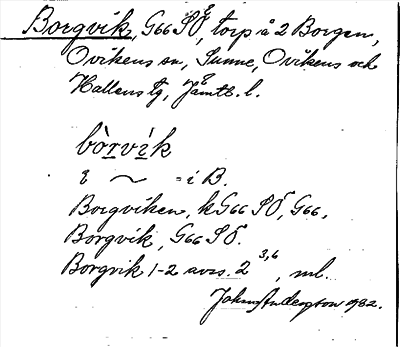 Borgvik, G66 SÖ, torp å 2 Borgen,
Ovikens sn, Sunne, Ovikens och
Hallens tg, Jämtl. l.
bòrvìk
i ~ = i B.
Borgviken, k G66 SÖ, G66.
Borgvik, G66 SÖ.
Borgvik 1-2 avs. 2 3,6, ml.
1982.